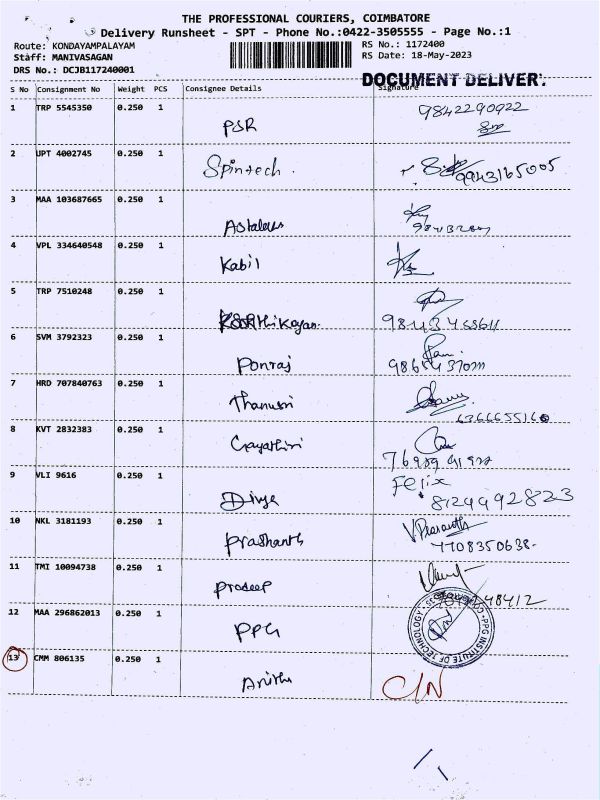 THE PROFESSIONAL COURIERS, COIMBATORE
Delivery Runsheet - SPT - Phone No.:0422-3505555 - Page No.:1
Route: KONDAYAMPALAYAM RS No.: 1172400
Staff: MANIVASAGAN RS Date: 18-May-2023
DRS No.: DCJB117240001
DOCUMENT DELIVERY
S No Consignment No Weight PCS Consignee Details Signature
1 TRP 5545350 0.250 1 PSR 9842290922
2 UPT 4002745 0.250 1 Spintech. 9943165005
3 MAA 103687665 0.250 1
4 VPL 334640548 0.250 1 Kabil
5 TRP 7510248 0.250 1 Karthikeyan.
6 SVM 3792323 0.250 1 Ponraj
7 HRD 707840763 0.250 1 Thanusri
8 KVT 2832383 0.250 1 Gayathiri
9 VLI 9616 0.250 1 Divya Felix 8124992823
10 NKL 3181193 0.250 1 Prashanth V. Prasanth 7708350638-
11 TMI 10094738 0.250 1 Pradeep
12 MAA 296862013 0.250 1 PPG PPG INSTITUTE OF TECHNOLOGY
13 CMM 806135 0.250 1 Anithu C/N